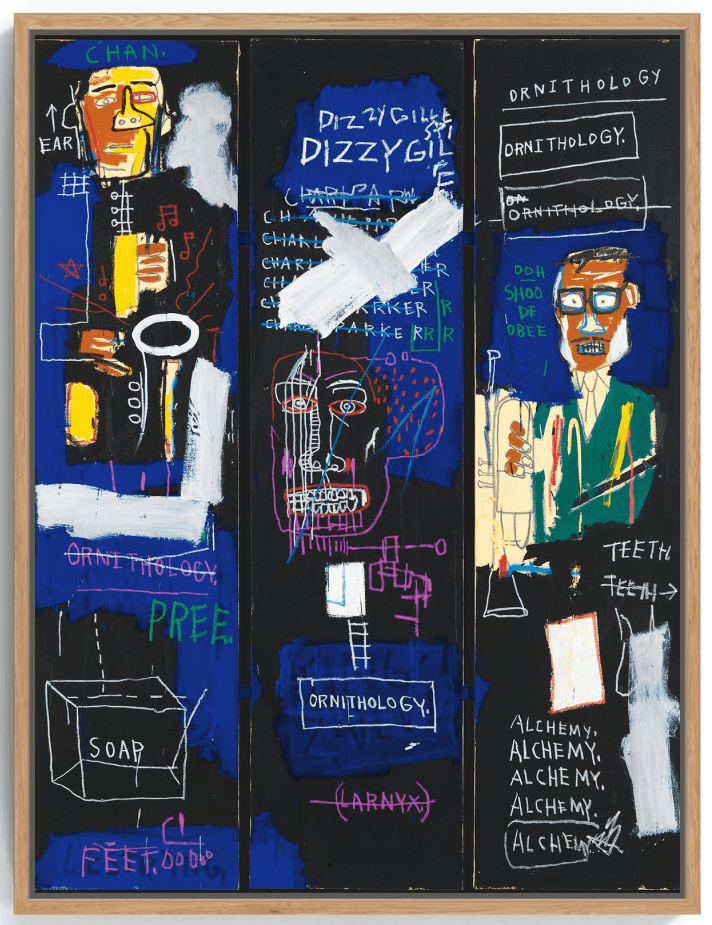 CHAN.
EAR
ORNITHOLOGY.
PREE.
SOAP
FEET.
DIZZYGILLE
SPI
DIZZYGIL
E
CHARLPARK
CH
CHARL
CHARL ER
CHARL ER R
CH RKER R
CHARL PARKERR R
ORNITHOLOGY.
(LARNYX.)
ORNITHOLOGY
ORNITHOLOGY.
ORNITHOLOGY.
OOH
SHOO
DE
OBEE
TEETH.
TEETH→
ALCHEMY.
ALCHEMY.
ALCHEMY.
ALCHEMY.
ALCHEMY